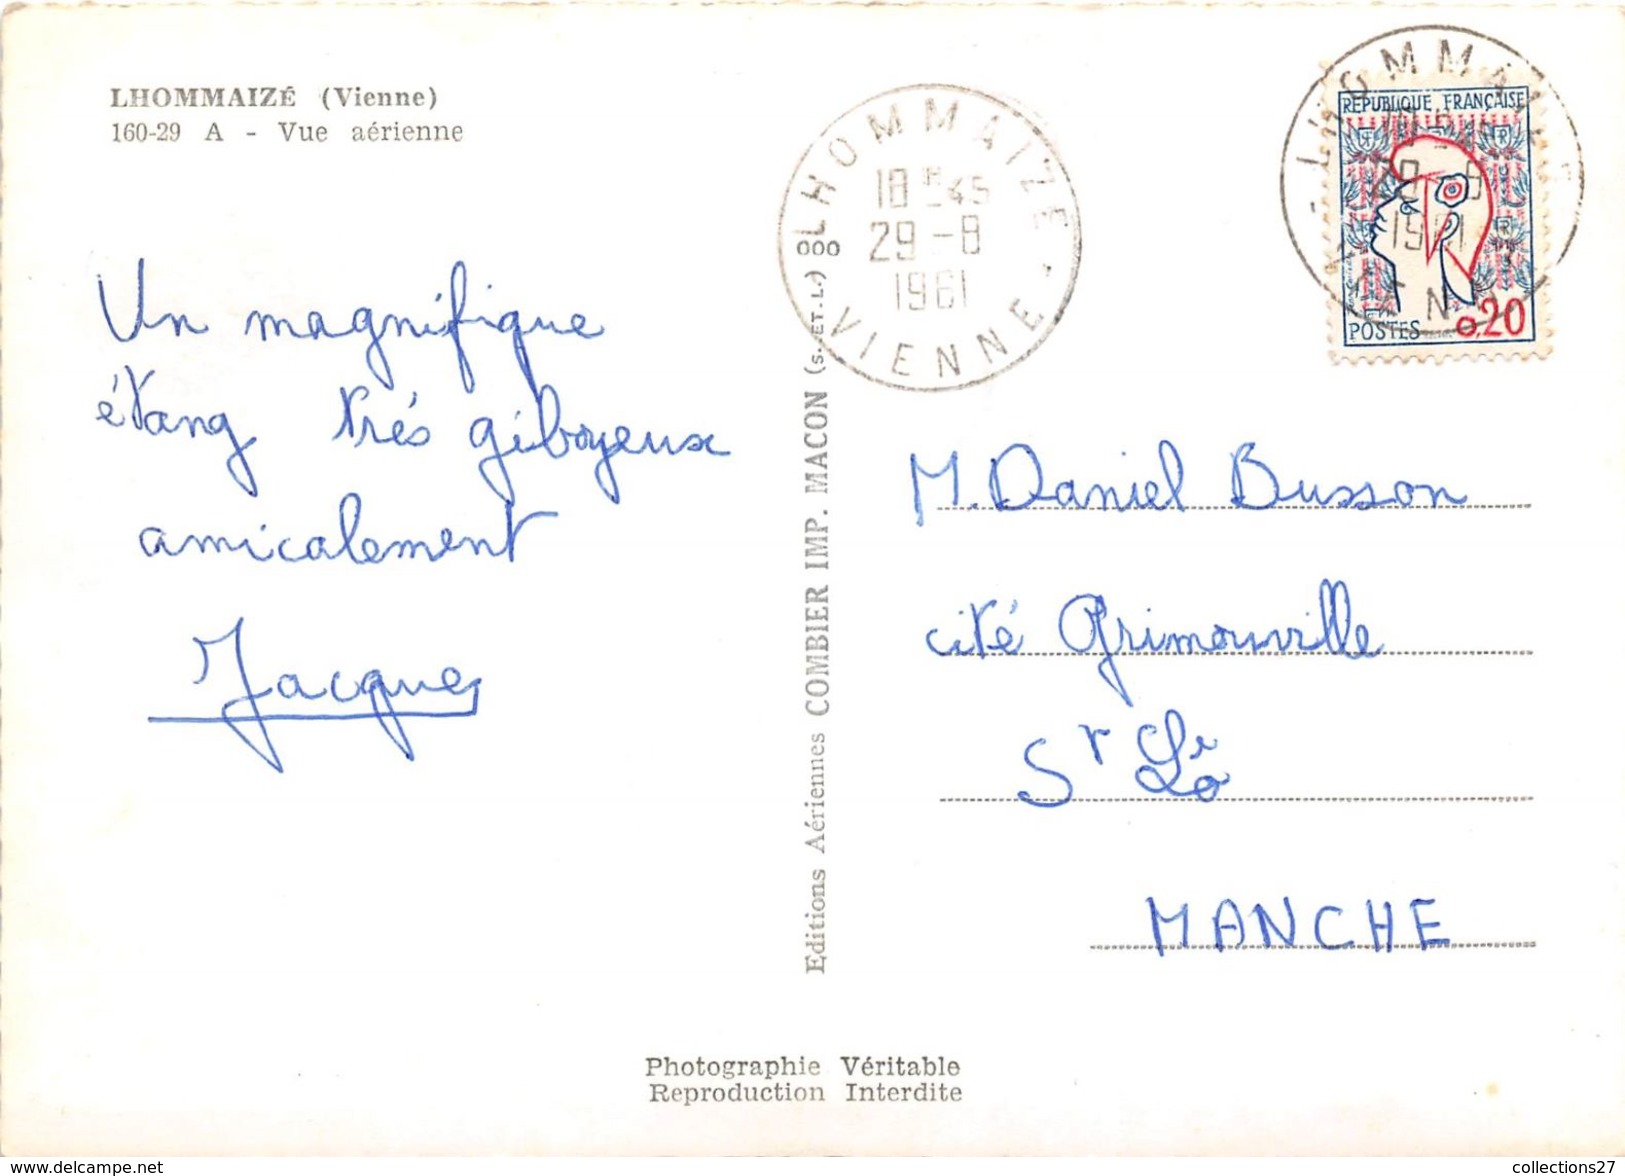 LHOMMAIZÉ (Vienne)
160-29 A - Vue aérienne
Un magnifique
étang trés giboyeux
amicalement
Jacques
Editions Aériennes COMBIER IMP. MACON (S. ET. L.)
LHOMMAIZE
18 H 45
29 -8
1961
VIENNE
REPUBLIQUE FRANÇAISE
POSTES 0,20
M. Daniel Busson
cité Grimouville
St Lô
MANCHE
Photographie Véritable
Reproduction Interdite
www.delcampe.net
collections27